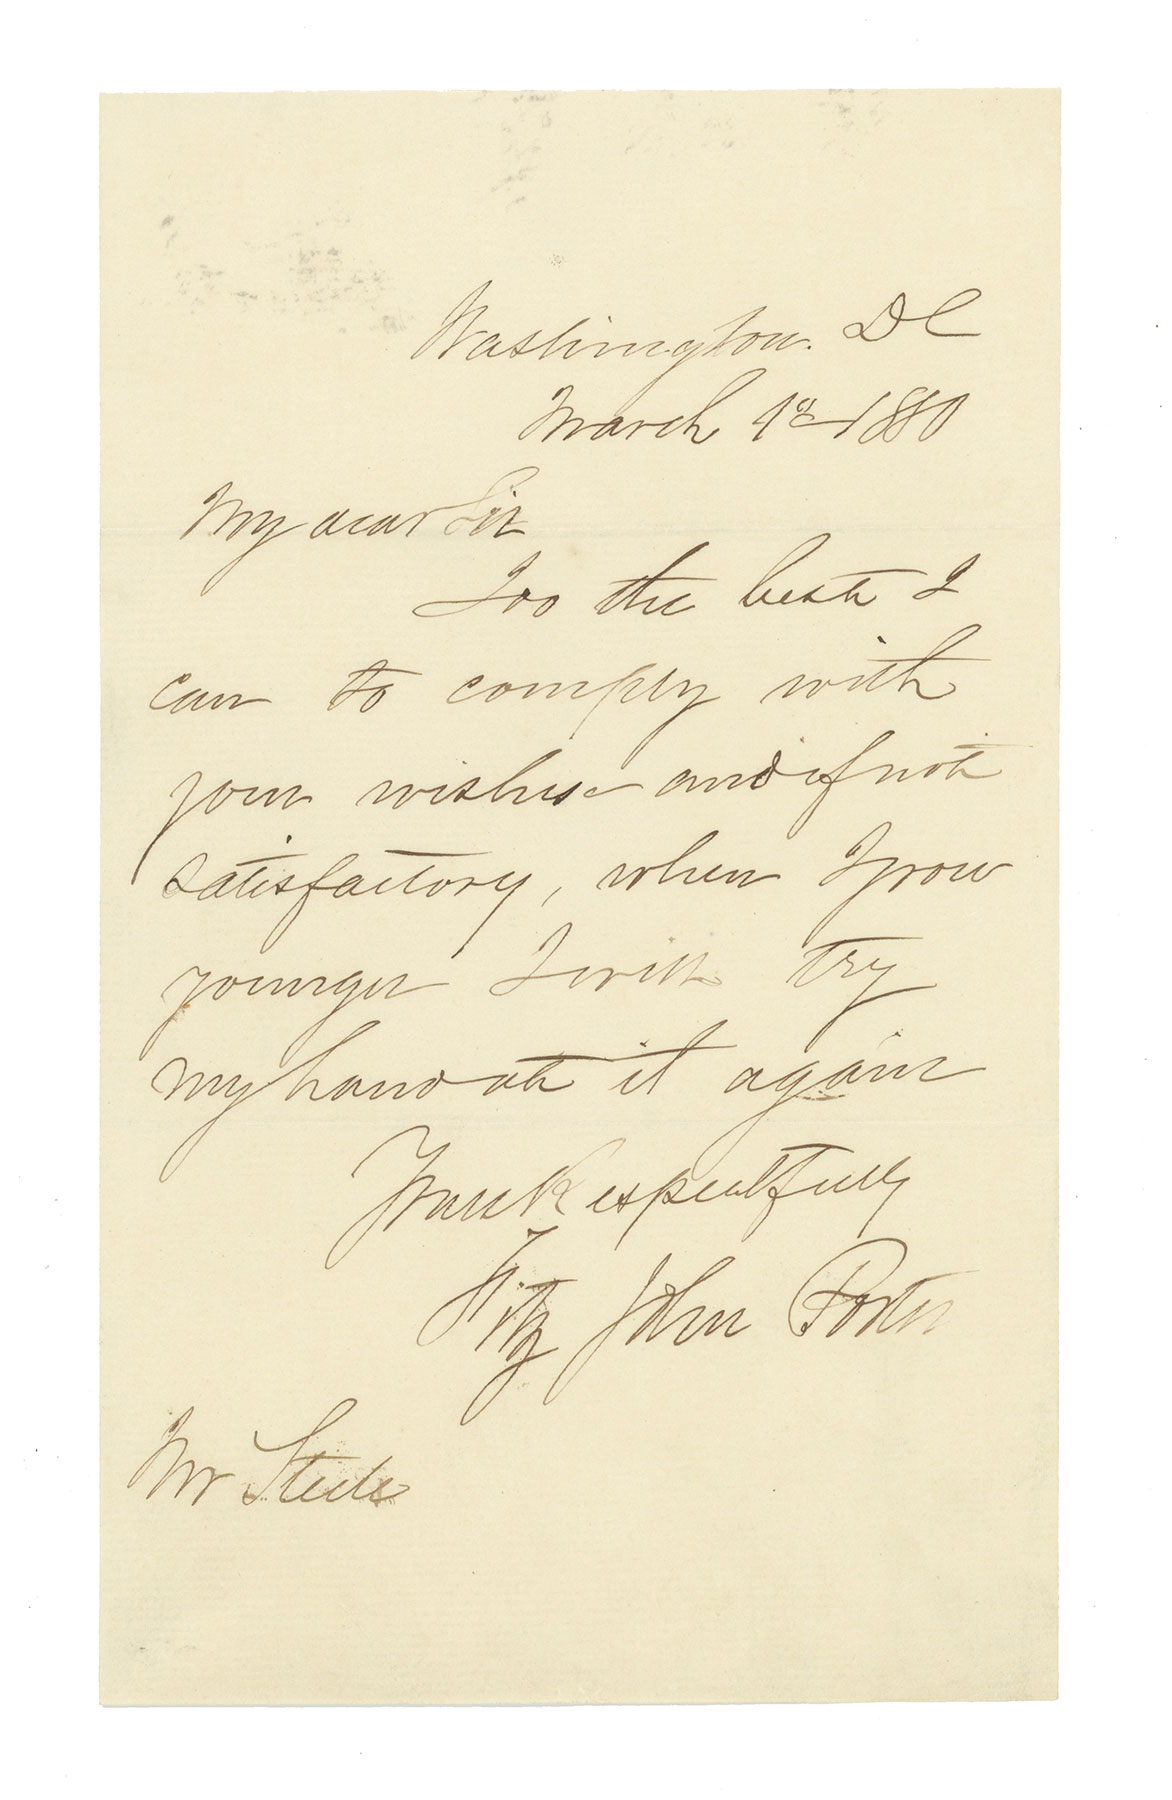 Washington. DC
March 1880
My dear Sir
I do the best I
can to comply with
your wishes and if not
satisfactory, when I grow
younger I will try
my hand at it again
Yours Respectfully
Fitz John Porter
Mr Steele